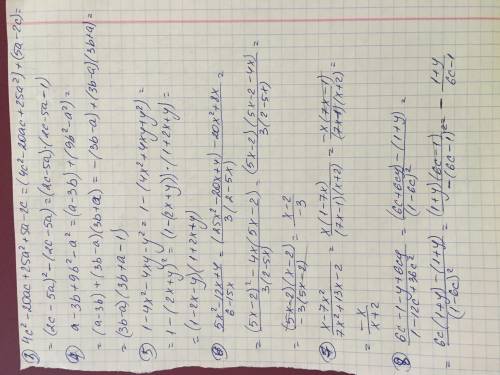 ③ 4c² - 20ac + 25a² + 5a - 2c = (4c² - 20ac + 25a²) + (5a - 2c) =
= (2c - 5a)² - (2c - 5a) = (2c - 5a)(2c - 5a - 1)
④ a - 3b + 9b² - a² = (a - 3b) + (9b² - a²) =
= (a - 3b) + (3b - a)(3b + a) = -(3b - a) + (3b - a)(3b + a) =
= (3b - a)(3b + a - 1)
⑤ 1 - 4x² - 4xy - y² = 1 - (4x² + 4xy + y²) =
= 1 - (2x + y)² = (1 - (2x + y))·(1 + 2x + y) =
= (1 - 2x - y)(1 + 2x + y)
⑥ (5x² - 12x + 4)/(6 - 15x) = ((25x² - 20x + 4) - 20x² + 8x)/(3(2 - 5x)) =
= ((5x - 2)² - 4x(5x - 2))/(3(2 - 5x)) = ((5x - 2)(5x - 2 - 4x))/(3(2 - 5x)) =
= ((5x - 2)(x - 2))/(-3(5x - 2)) = (x - 2)/(-3)
⑦ (x - 7x²)/(7x² + 13x - 2) = (x(1 - 7x))/((7x - 1)(x + 2)) = (-x(7x - 1))/((7x - 1)(x + 2)) =
= (-x)/(x + 2)
⑧ (6c - 1 - y + 6cy)/(1 - 12c + 36c²) = ((6c + 6cy) - (1 + y))/((1 - 6c)²) =
= (6c(1 + y) - (1 + y))/((1 - 6c)²) = ((1 + y)(6c - 1))/(-(6c - 1)²) = - (1 + y)/(6c - 1)